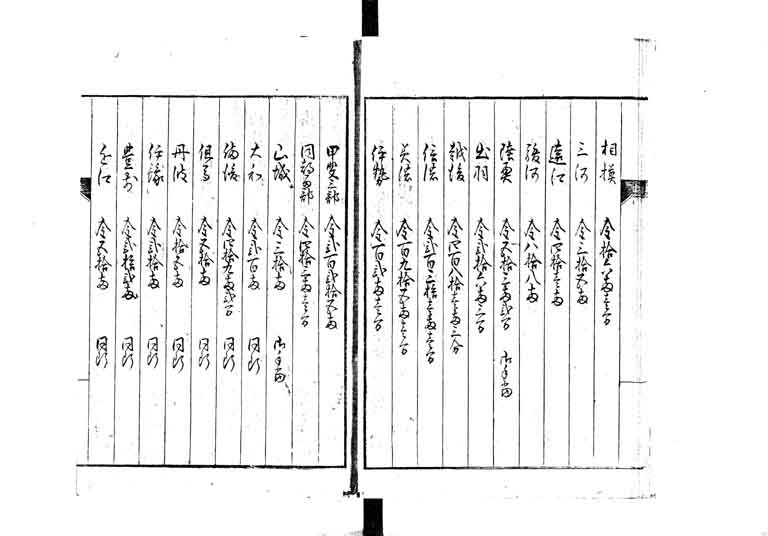 相模 金拾八両三分
三河 金三拾五両
遠江 金四拾壱両
駿河 金八拾八両
陸奥 金五拾三両弐分 御手当
出羽 金弐拾八両三分
越後 金四百八拾壱両三分
信濃 金弐百三拾壱両壱分
美濃 金百九拾五両壱分
伊勢 金百弐両壱分
甲斐三郡 金弐百弐拾五両
同 郡 金四拾三両壱分
山城 金三拾両 御手当
大和 金弐百両 同断
備後 金四拾九両弐分 同断
但馬 金五拾両 同断
丹波 金拾五両 同断
伊豫 金弐拾両 同断
豊前 金弐拾弐両 同断
近江 金五拾両 同断